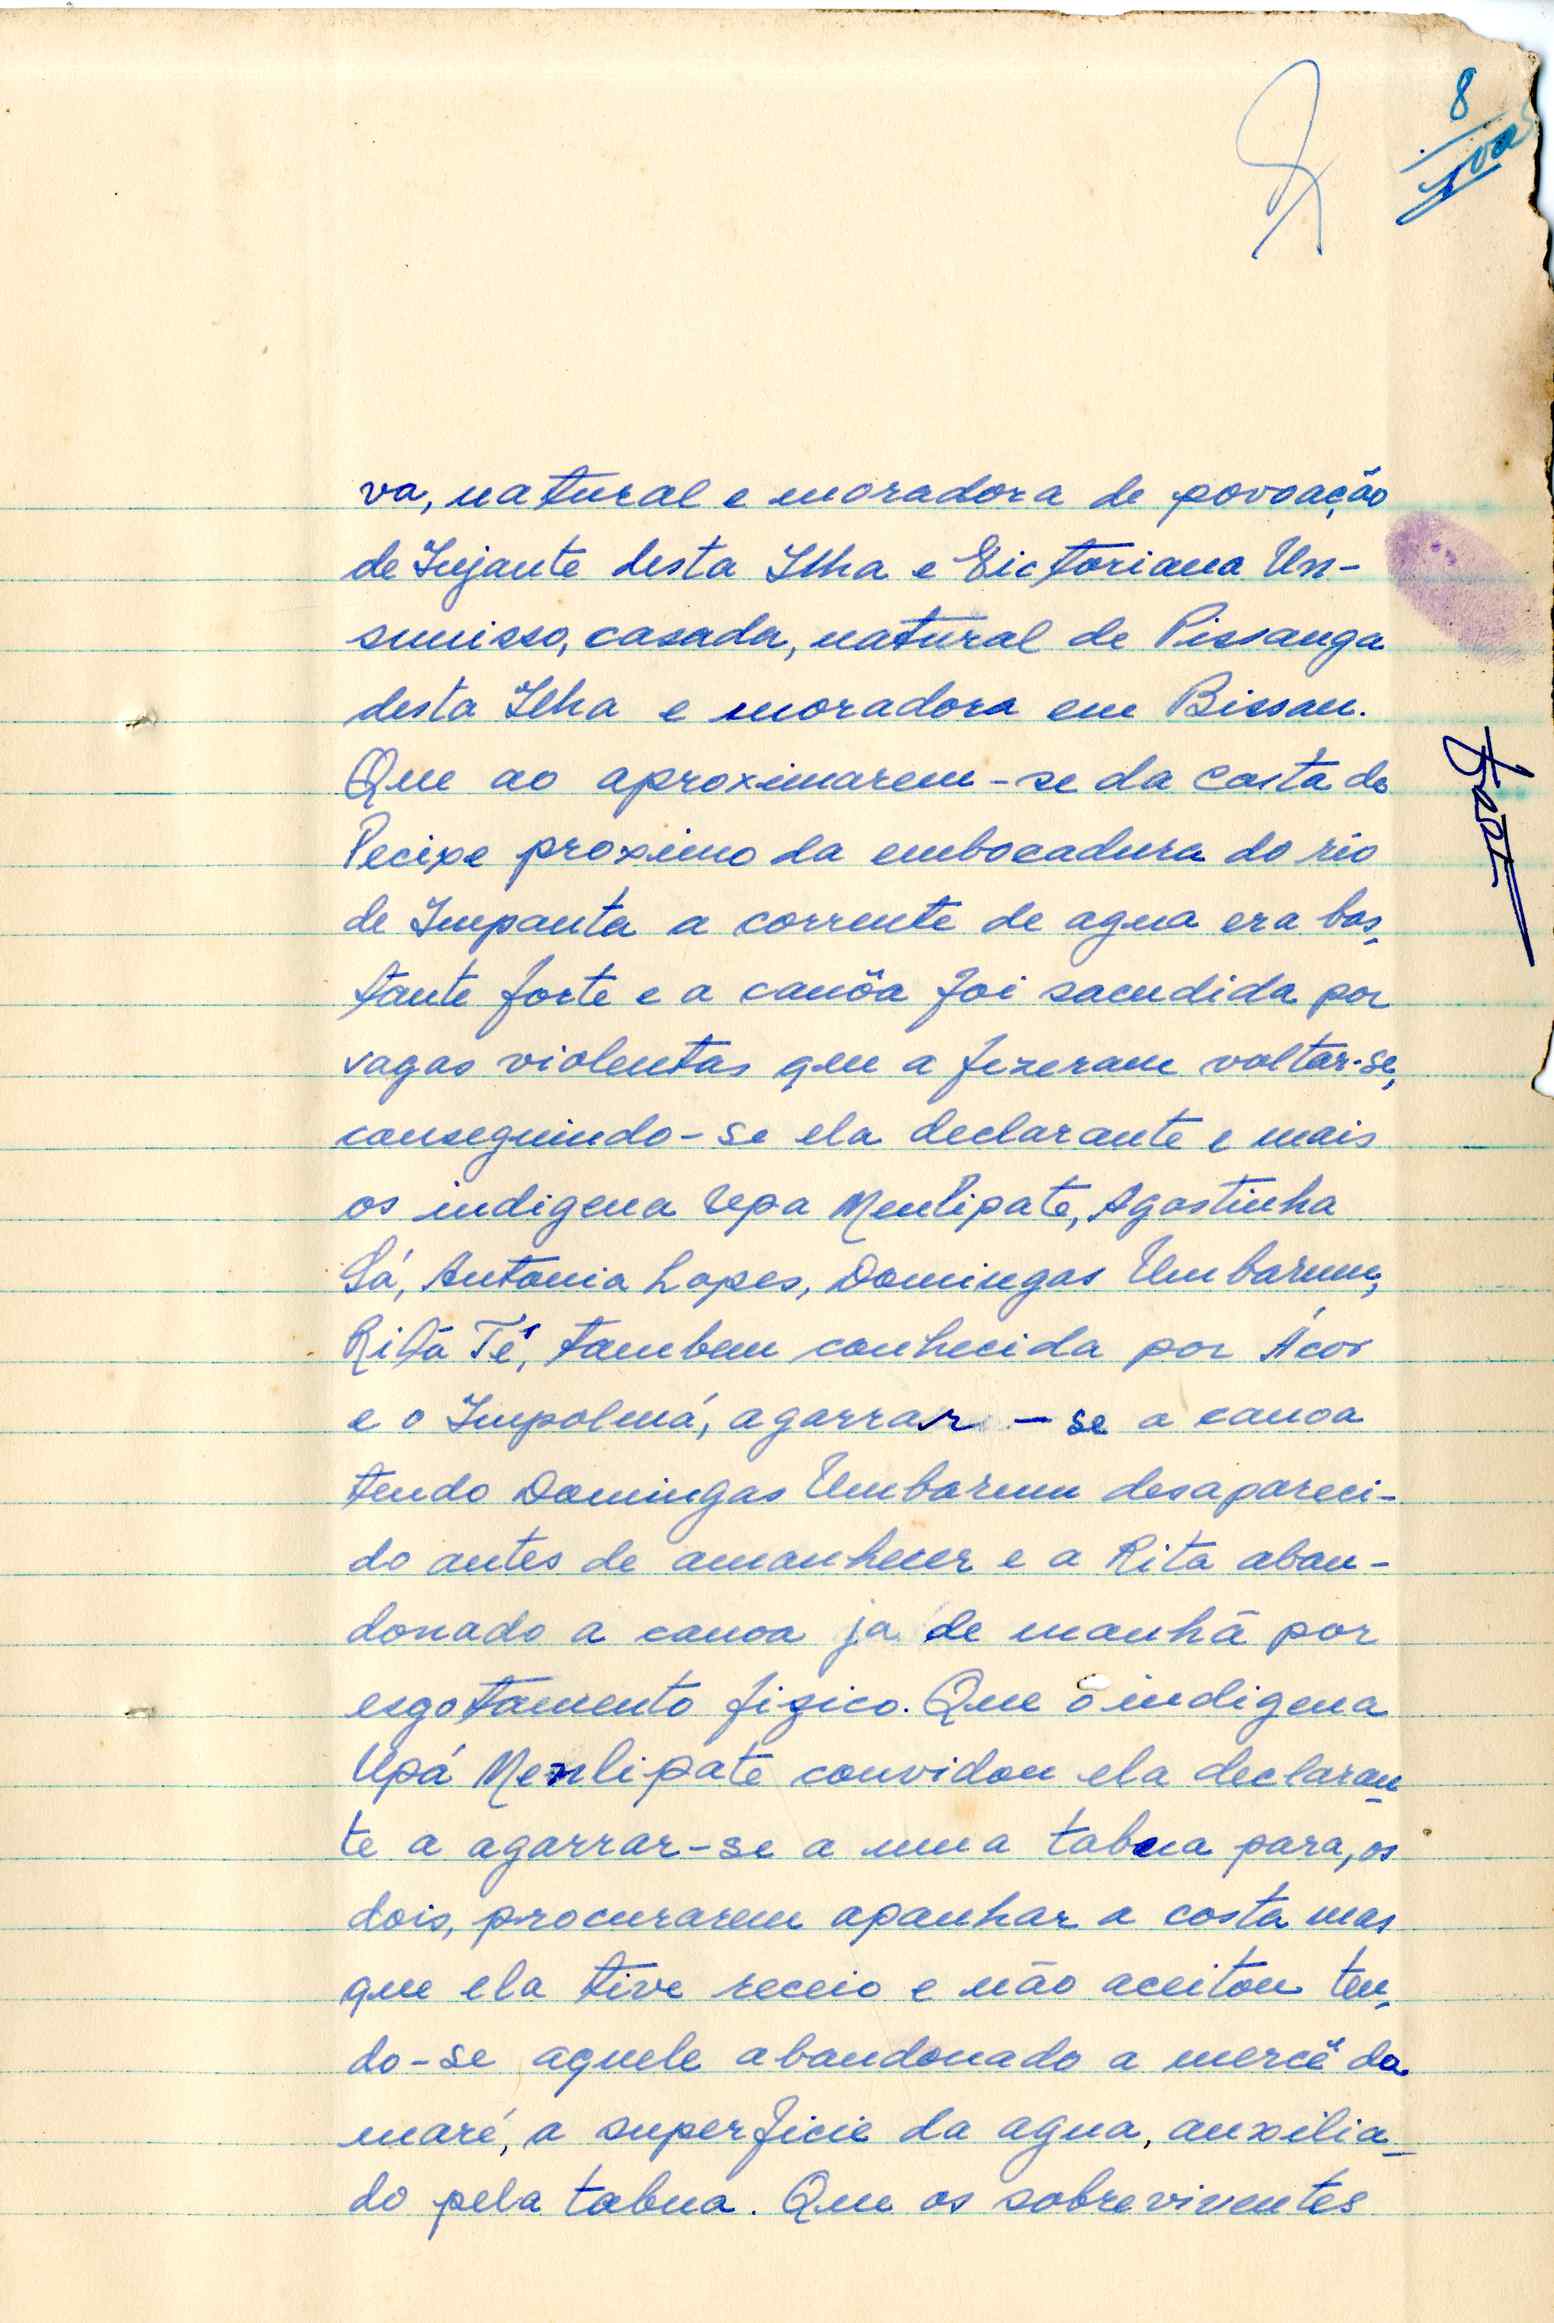 8
va, natural e moradora de povoação
de Injante desta Ilha e Victoriana Un-
sunisso, casada, natural de Pissanga
desta Ilha e moradora em Bissau.
Que ao aproximarem-se da costa de
Pecixe proximo da embocadura do rio
de Impanta a corrente de agua era bas-
tante forte e a canôa foi sacudida por
vagas violentas que a fizeram voltar-se,
conseguindo-se ela declarante e mais
os indigena Upa Menlipate, Agostinha
Sá, Antonia Lopes, Domingas Umbarum,
Rita Té, tambem conhecida por Ácor
e o Impolmá, agarrar-se a canoa
tendo Domingas Umbarum desapareci-
do antes de amanhecer e a Rita aban-
donado a canoa ja de manhã por
esgotamento fizico. Que o indigena
Upá Menlipate convidou ela declaran-
te a agarrar-se a uma tabua para, os
dois, procurarem apanhar a costa mas
que ela tive receio e não aceitou ten-
do-se aquele abandonado a mercê da
maré, a superficie da agua, auxilia-
do pela tabua. Que os sobreviventes